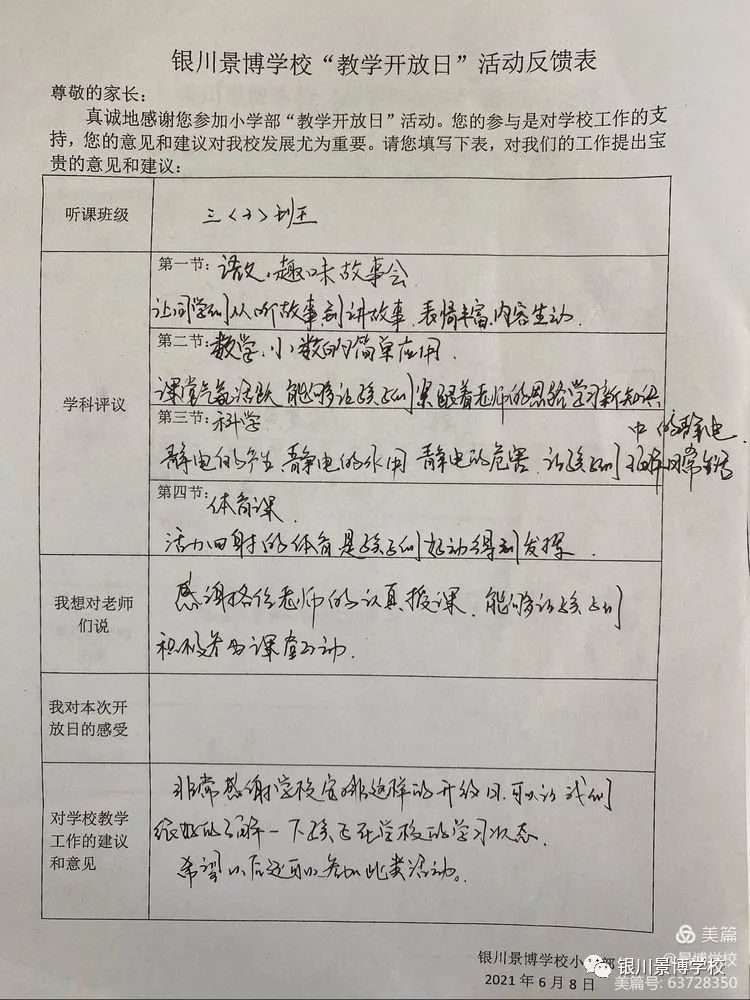 银川景博学校“教学开放日”活动反馈表
尊敬的家长：
真诚地感谢您参加小学部“教学开放日”活动。您的参与是对学校工作的支
持，您的意见和建议对我校发展尤为重要。请您填写下表，对我们的工作提出宝
贵的意见和建议：
听课班级
三〈2〉班
学科评议
第一节：语文.趣味故事会
让同学们从听故事到讲故事.表情丰富.内容生动.
第二节：数学.小数的简单应用.
课堂气氛活跃 能够让孩子们紧跟着老师的思路学习新知识
第三节：科学
静电的产生 静电的作用 静电的危害.让孩子们了解日常生活
中的静电.
第四节：体育课.
活力四射的体育是孩子们好动得到发挥.
我想对老师
们说
感谢各位老师的认真授课.能够让孩子们
积极参与课堂互动.
我对本次开
放日的感受
对学校教学
工作的建议
和意见
非常感谢学校安排这样的开放日.可以让我们
很好的了解一下孩子在学校的学习状态.
希望以后还可以参加此类活动。
银川景博学校小 部
2021年6月8日
美篇
@景博学校
银川景博学校
美篇号: 63728350